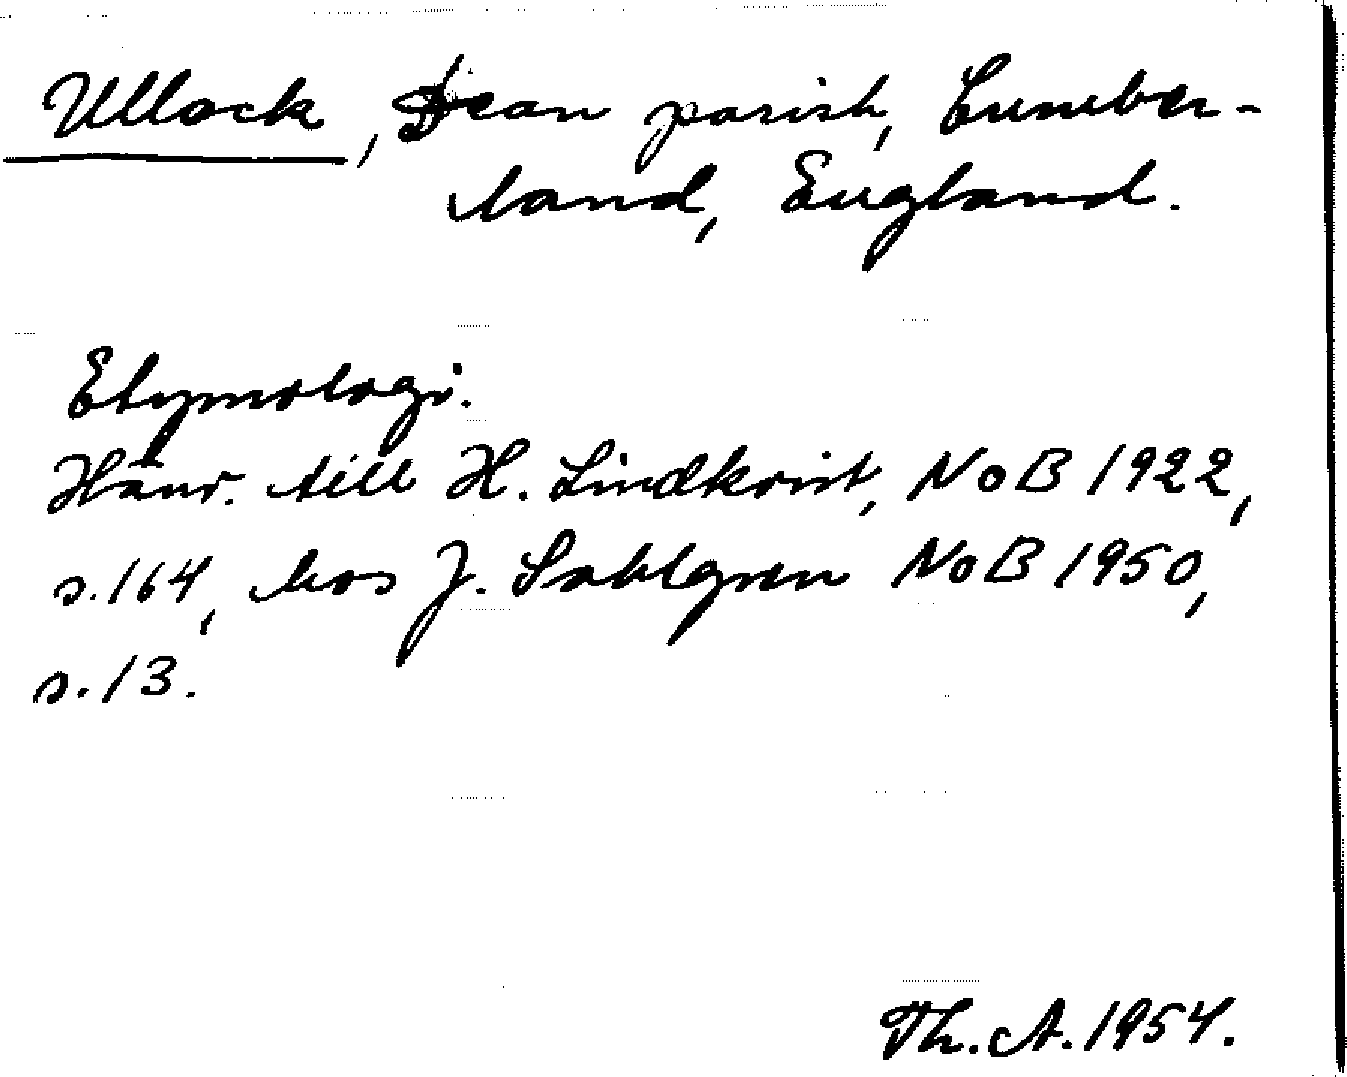 Ullock, Dean parish, Cumber-
land, England.
Etymologi.
Hänv. till H. Lindkvist, NoB 1922,
s. 164, hos J. Sahlgren NoB 1950,
s. 13.
Th. A. 1954.